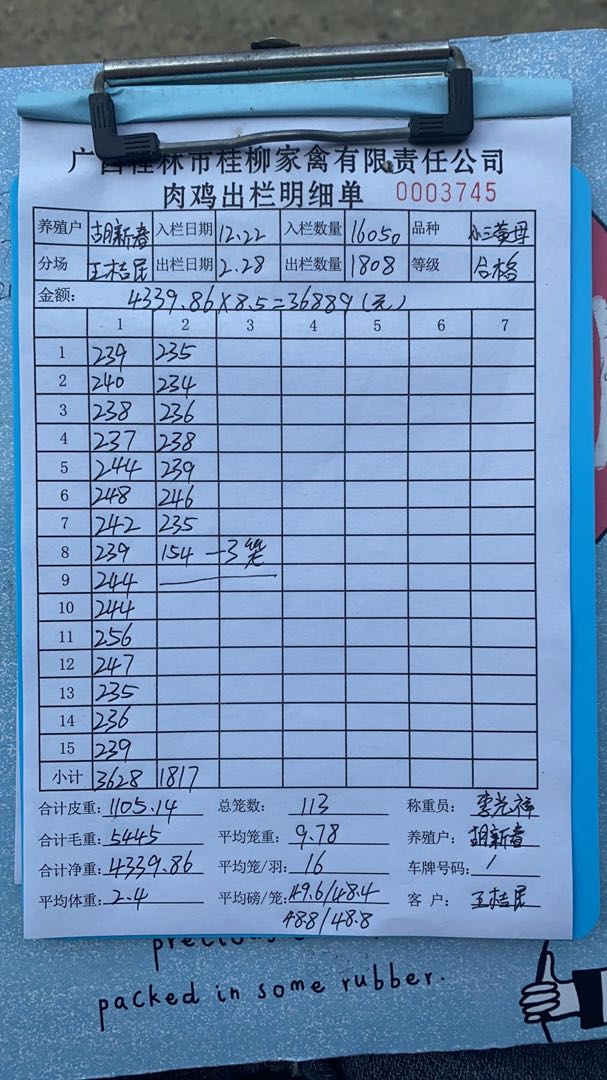 广西桂林市桂柳家禽有限责任公司
肉鸡出栏明细单 0003745
养殖户 胡新春 入栏日期 12.22 入栏数量 16050 品种 小三黄母
分场 王桔民 出栏日期 2.28 出栏数量 1808 等级 合格
金额: 4339.86×8.5=36889(元)
1 2 3 4 5 6 7
1 239 235
2 240 234
3 238 236
4 237 238
5 244 239
6 248 246
7 242 235
8 239 154 —3笼
9 244
10 244
11 256
12 247
13 235
14 236
15 239
小计 3628 1817
合计皮重: 1105.14 总笼数: 113 称重员: 李光祥
合计毛重: 5445 平均笼重: 9.78 养殖户: 胡新春
合计净重: 4339.86 平均笼/羽: 16 车牌号码: /
平均体重: 2.4 平均磅/笼: 49.6/48.4 客户: 王桔民
48.8/48.8
packed in some rubber.